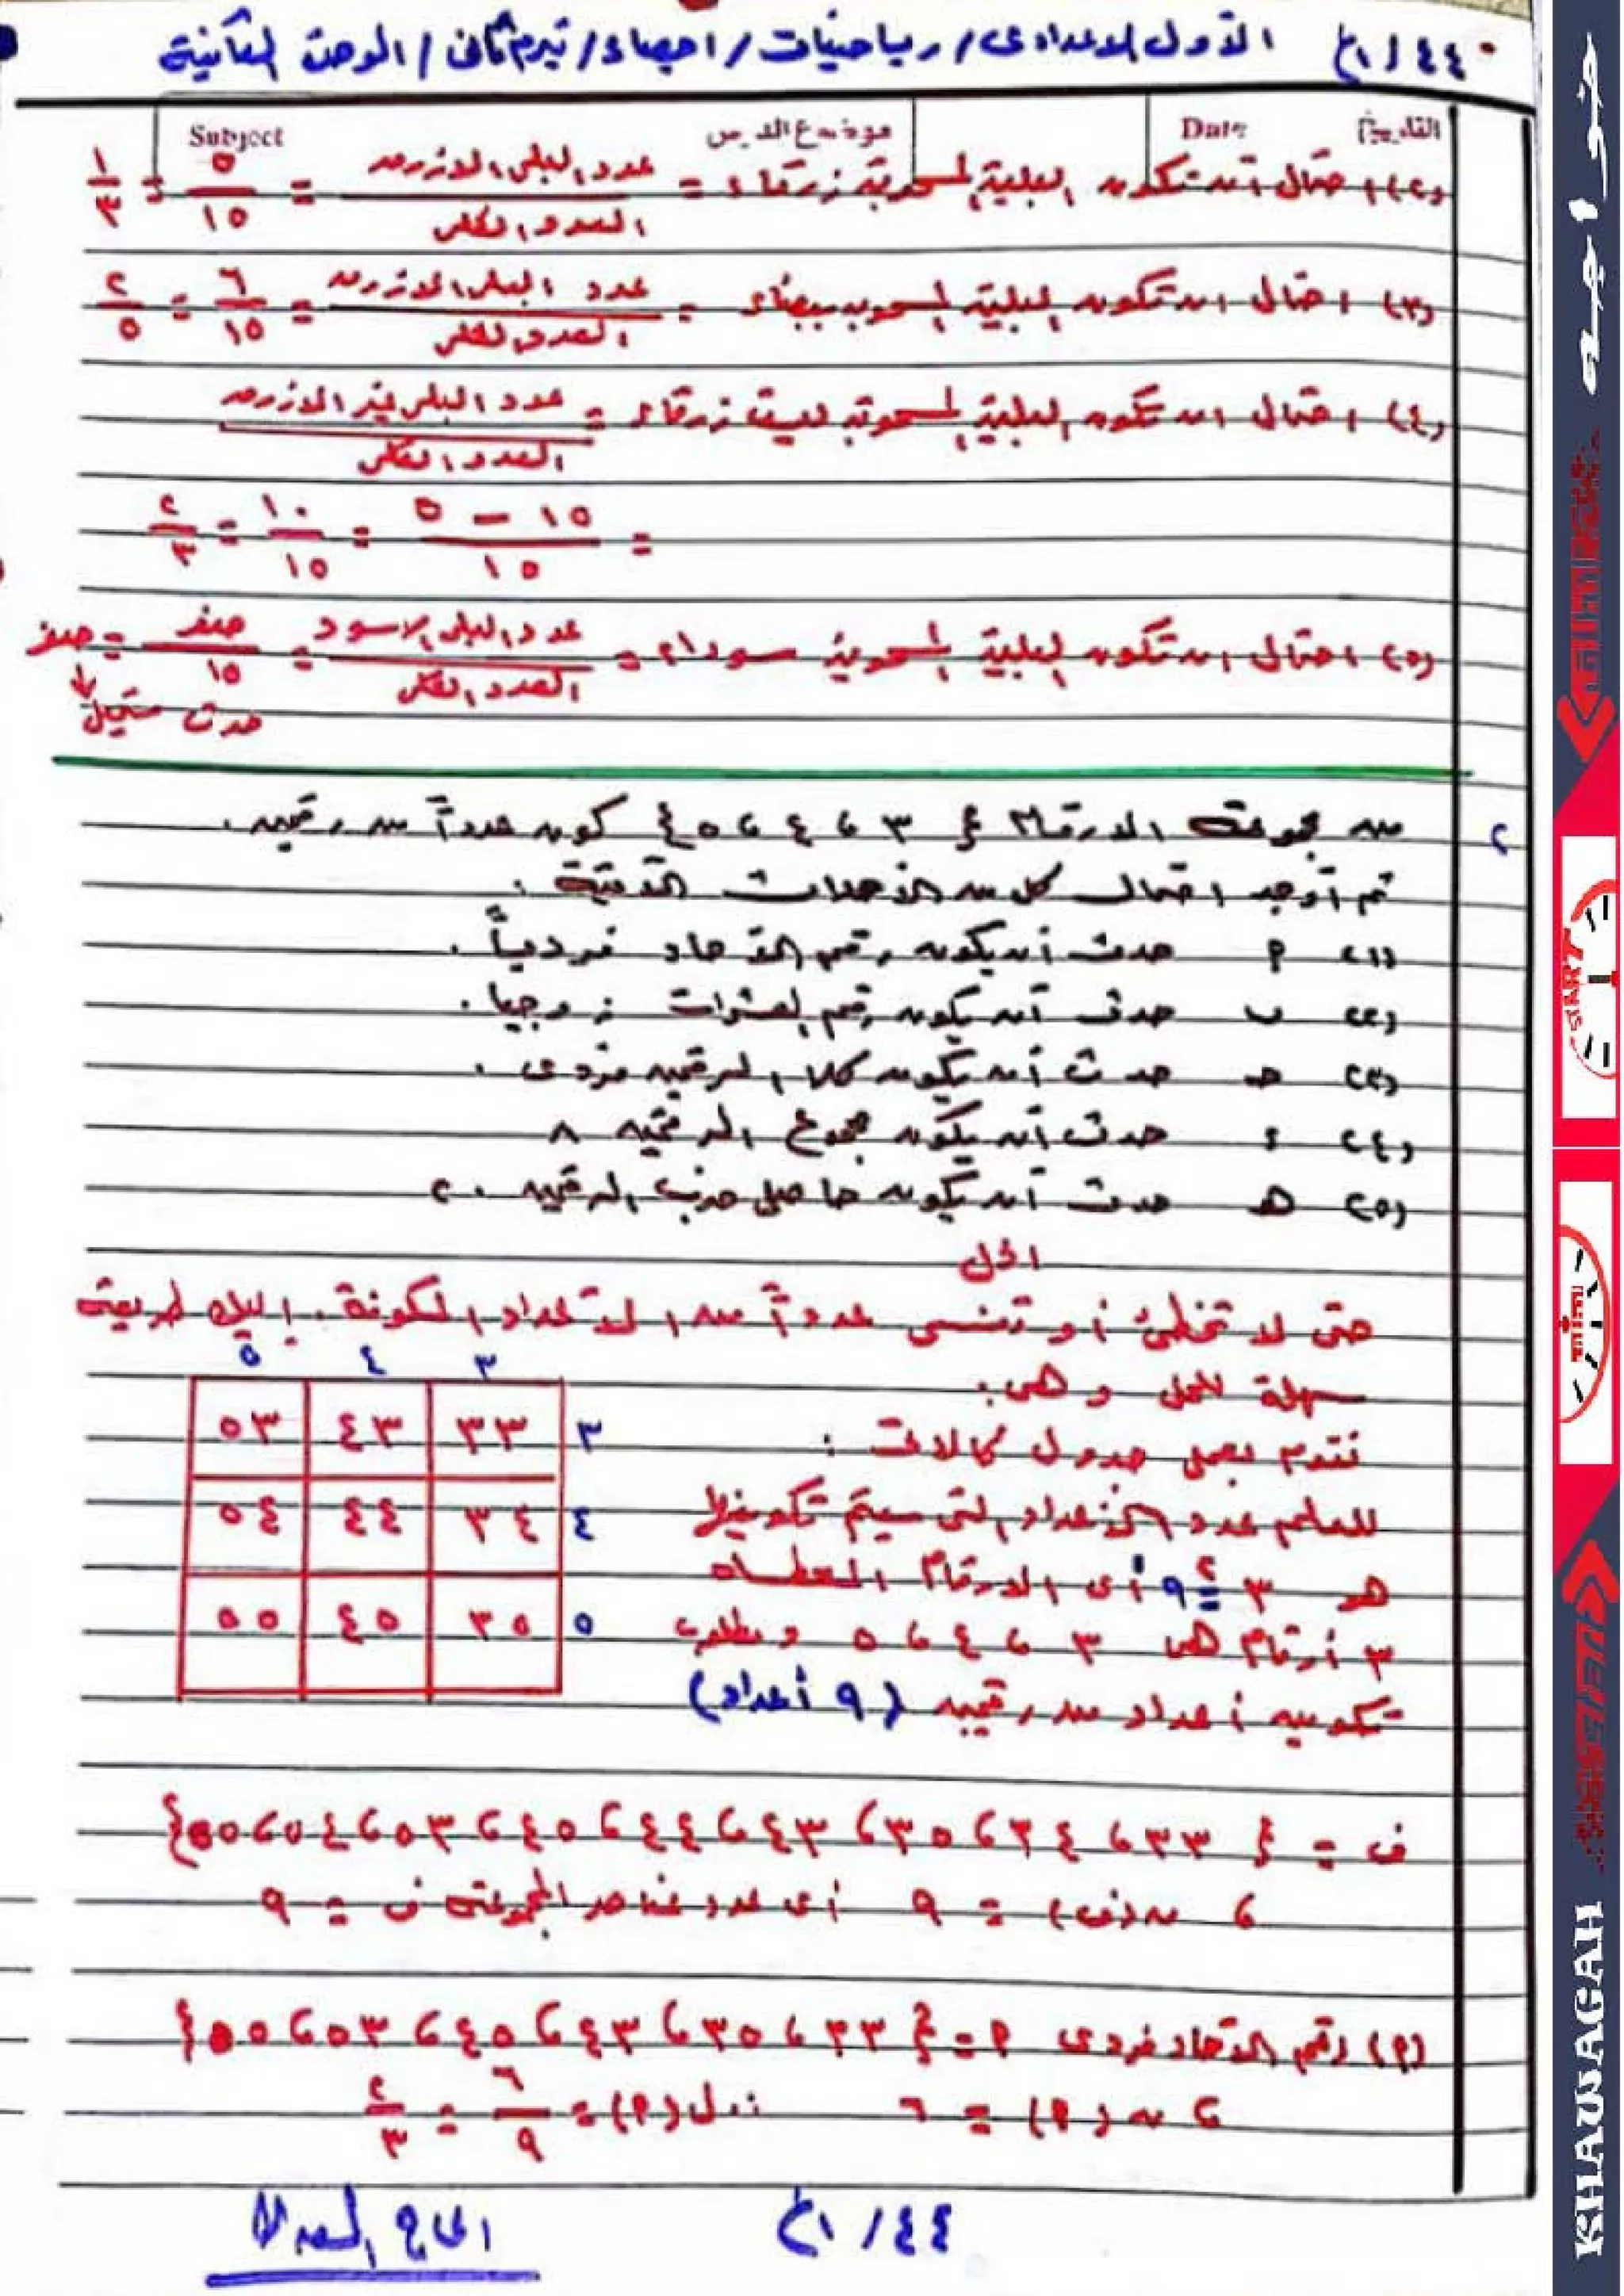 ٤٤ / ١ع الأول الاعدادى / رياضيات / احصاء / تيرم ثانى / الوحدة الثانية
التاريخ Date موضوع الدرس Subject
(٢) احتمال أن تكون البلية المسحوبة زرقاء = عدد البلى الازرق / العدد الكلى = ٥/١٥ = ١/٣
(٣) احتمال ان تكون البلية المسحوبة بيضاء = عدد البلى الازرق / العدد الكلى = ٦/١٥ = ٢/٥
(٤) احتمال ان تكون البلية المسحوبة ليست زرقاء = عدد البلى غير الازرق / العدد الكلى
= ١٥ - ٥ / ١٥ = ١٠/١٥ = ٢/٣
(٥) احتمال ان تكون البلية المسحوبة سوداء = عدد البلى الاسود / العدد الكلى = صفر/١٥ = صفر
↓
حدث مستحيل
٢ من مجموعة الارقام { ٣ ، ٤ ، ٥ } كون عدداً من رقمين .
ثم أوجد احتمال كل من الأحداث الآتية :
(١) P حدث أن يكون رقم الآحاد فردياً .
(٢) ب حدث أن يكون رقم العشرات زوجيا .
(٣) حـ حدث أن يكون كلا الرقمين فردى .
(٤) ء حدث أن يكون مجموع الرقمين ٨
(٥) هـ حدث أن يكون حاصل ضرب الرقمين ٢٠
الحل
حتى لا تخطئ أو تنسى عدداً من الاعداد المكونة . إليك طريقة
سهلة للحل وهى :
نقوم بعمل جدول كالآتى :
للعلم عدد الأعداد التى سيتم تكوينها
هو ٣² = ٩ أى الارقام المعطاه
٣ أرقام هى ٣ ، ٤ ، ٥ ومطلوب
تكوين أعداد من رقمين (٩ أعداد)
٣ ٤ ٥
٣ ٣٣ ٤٣ ٥٣
٤ ٣٤ ٤٤ ٥٤
٥ ٣٥ ٤٥ ٥٥
ف = { ٣٣ ، ٣٤ ، ٣٥ ، ٤٣ ، ٤٤ ، ٤٥ ، ٥٣ ، ٥٤ ، ٥٥ }
، ن(ف) = ٩ أى عدد عناصر المجموعة ف = ٩
(P) رقم الآحاد فردى P = { ٣٣ ، ٣٥ ، ٤٣ ، ٤٥ ، ٥٣ ، ٥٥ }
، ن (P) = ٦ ∴ ل(P) = ٦/٩ = ٢/٣
٤٤ / ١ع
خواجه
START
KHAWAGAH